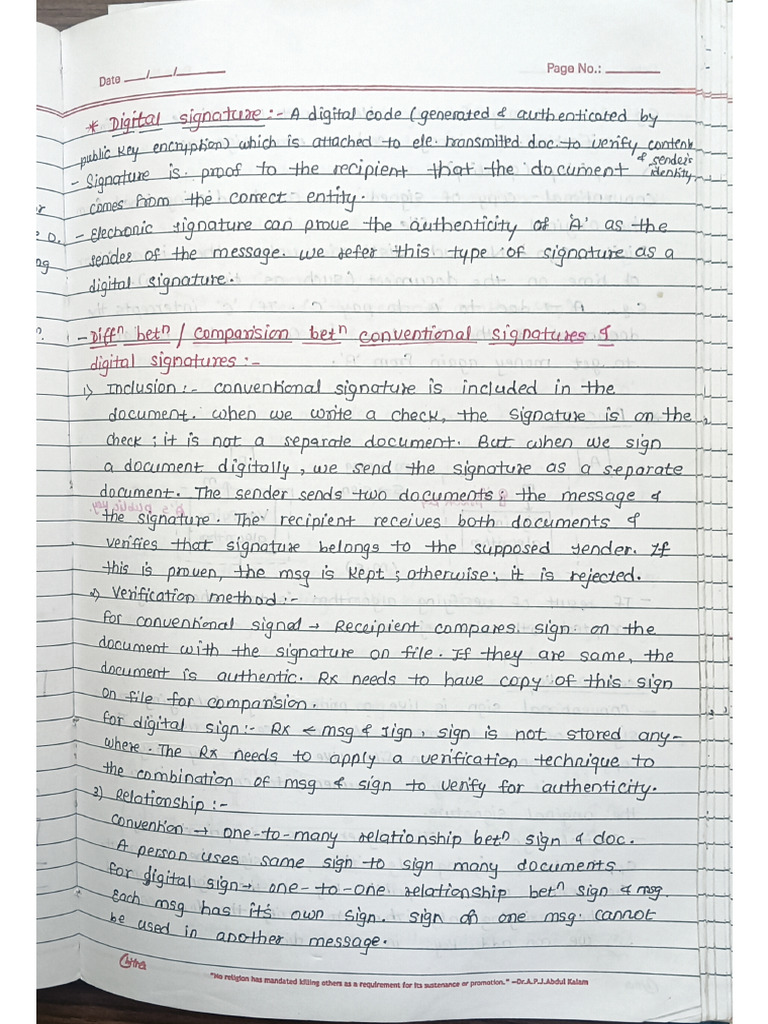 Date ___/___/______ Page No.: ______
* Digital signature :- A digital code (generated & authenticated by
public key encryption) which is attached to ele. transmitted doc. to verify content
& sender's
identity.
- Signature is proof to the recipient that the document
comes from the correct entity.
- Electronic signature can prove the authenticity of 'A' as the
sender of the message. We refer this type of signature as a
digital signature.
- Diffⁿ betⁿ / comparision betⁿ conventional signatures &
digital signatures :-
1) Inclusion :- conventional signature is included in the
document. when we write a check, the signature is on the
check ; it is not a separate document. But when we sign
a document digitally, we send the signature as a separate
document. The sender sends two documents ; the message &
the signature. The recipient receives both documents &
verifies that signature belongs to the supposed sender. If
this is proven, the msg is kept ; otherwise ; it is rejected.
2) Verification method :-
for conventional signal → Receipient compares sign. on the
document with the signature on file. If they are same, the
document is authentic. Rx needs to have copy of this sign
on file for comparision.
for digital sign :- Rx ← msg & sign, sign is not stored any-
where. The Rx needs to apply a verification technique to
the combination of msg & sign to verify for authenticity.
3) Relationship :-
convention → one-to-many relationship betⁿ sign & doc.
A person uses same sign to sign many documents
for digital sign → one-to-one relationship betⁿ sign & msg.
Each msg has its own sign. sign of one msg. cannot
be used in another message.
"No religion has mandated killing others as a requirement for its sustenance or promotion." –Dr.A.P.J.Abdul Kalam